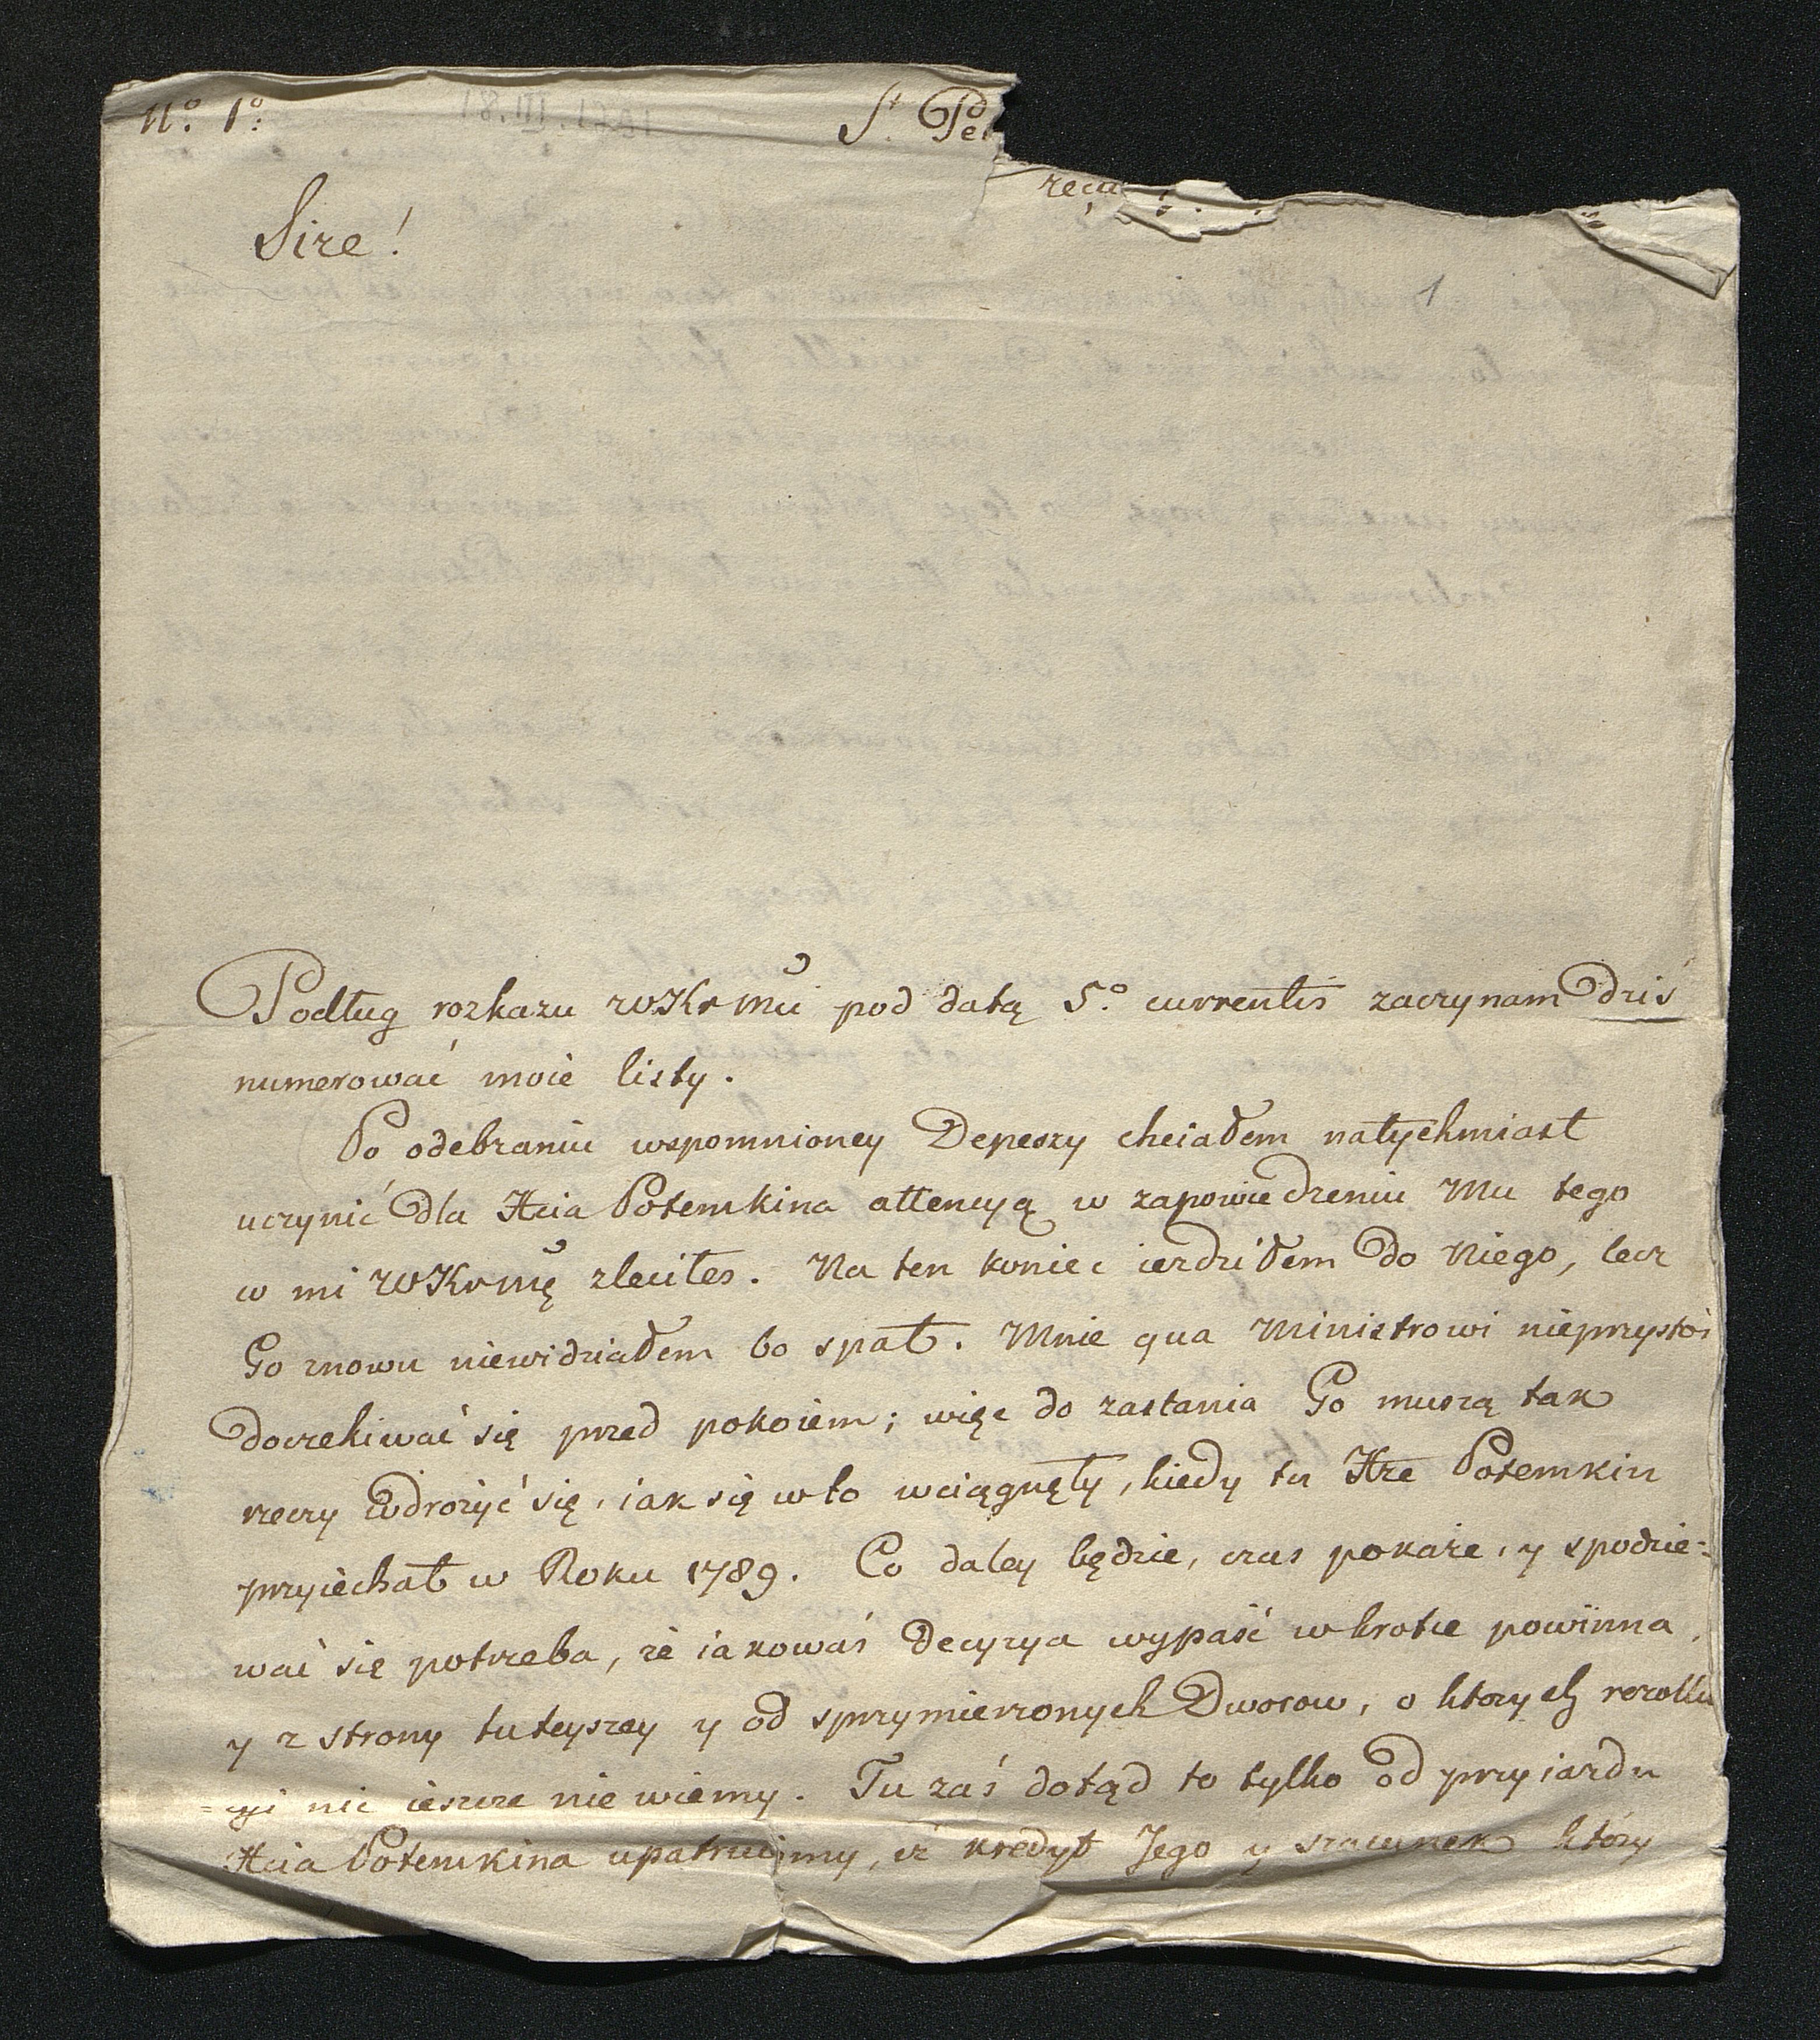 N.º 1º:
Sº Pe
reçu
Sire!
1
Podług rozkazu WKrMci pod datą 5.º currentis zaczynam dziś
numerować moie listy.
Po odebraniu wspomnioney Depeszy chciałem natychmiast
uczynić dla Xcia Potemkina attencyą w zapowiedzeniu Mu tego
co mi WKrMć zleciłeś. Na ten koniec iezdziłem do Niego, lecz
Go znowu niewidziałem bo spał. Mnie qua Ministrowi nieprzystoi
doczekiwać się przed pokoiem; więc do zastania Go muszą tak
rzeczy wdrożyć się, iak się w to wciągnęły, kiedy tu Xże Potemkin
przyiechał w Roku 1789. Co daley będzie, czas pokaże, y spodzie=
wać się potrzeba, że iakowaś decyzya wypaść wkrotce powinna,
y z strony tuteyszey y od sprzymierzonych Dworow, o ktorych rezollu
=cyi nic ieszcze nie wiemy. Tu zaś dotąd to tylko od przyiazdu
Xcia Potemkina upatruiemy, iż kredyt Jego y szacunek ktory